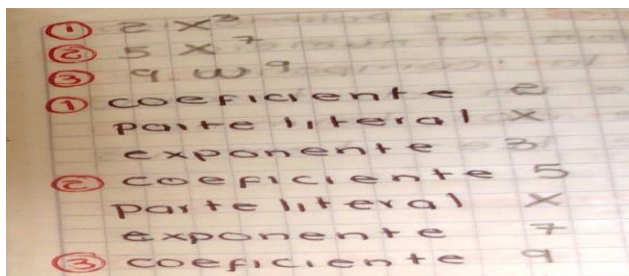 ① 2 x³
② 5 x⁷
③ 9 w⁹
① coeficiente 2
parte literal x
exponente 3
② coeficiente 5
parte literal x
exponente 7
③ coeficiente 9